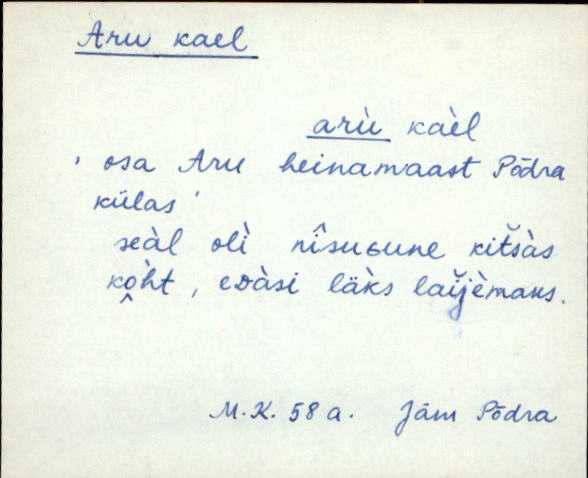 Aru kael
arù kaèl
' osa Aru heinamaast Põdra
külas '
seàl olì nîsuɢune kit̆sàs
kọ̀ht , edàsi läks laĭjèmaks.
M.K. 58 a. Jäm Põdra